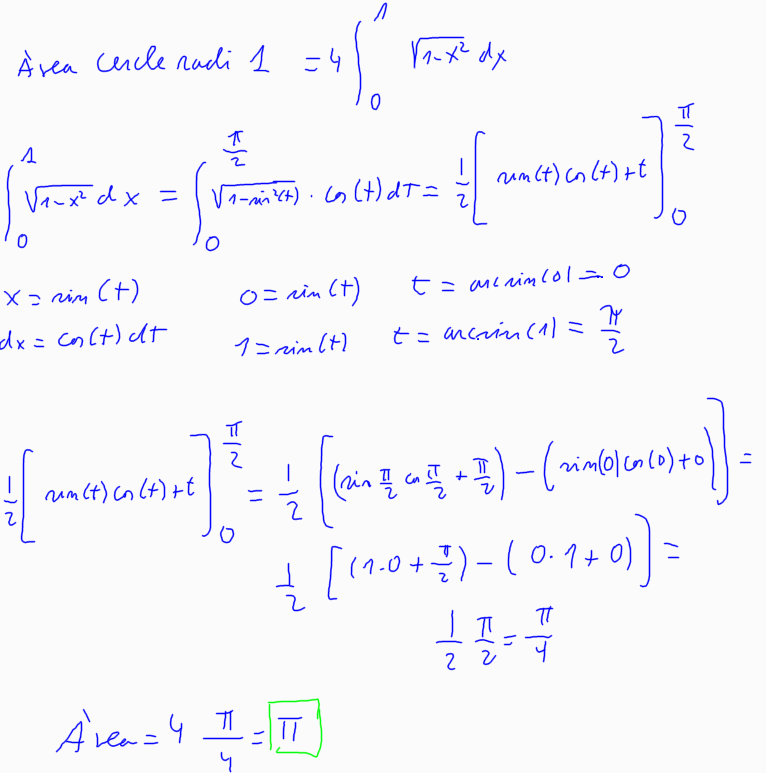 Àrea cercle radi 1 = 4 ∫₀¹ √(1-x²) dx
∫₀¹ √(1-x²) dx = ∫₀^(π/2) √(1-sin²(t)) · cos(t) dt = 1/2 [ sin(t) cos(t) + t ]₀^(π/2)
x = sin(t)   0 = sin(t)   t = arcsin(0) = 0
dx = cos(t) dt   1 = sin(t)   t = arcsin(1) = π/2
1/2 [ sin(t) cos(t) + t ]₀^(π/2) = 1/2 [ (sin π/2 cos π/2 + π/2) - (sin(0) cos(0) + 0) ] =
1/2 [ (1·0 + π/2) - (0·1 + 0) ] =
1/2 π/2 = π/4
Àrea = 4 π/4 = π